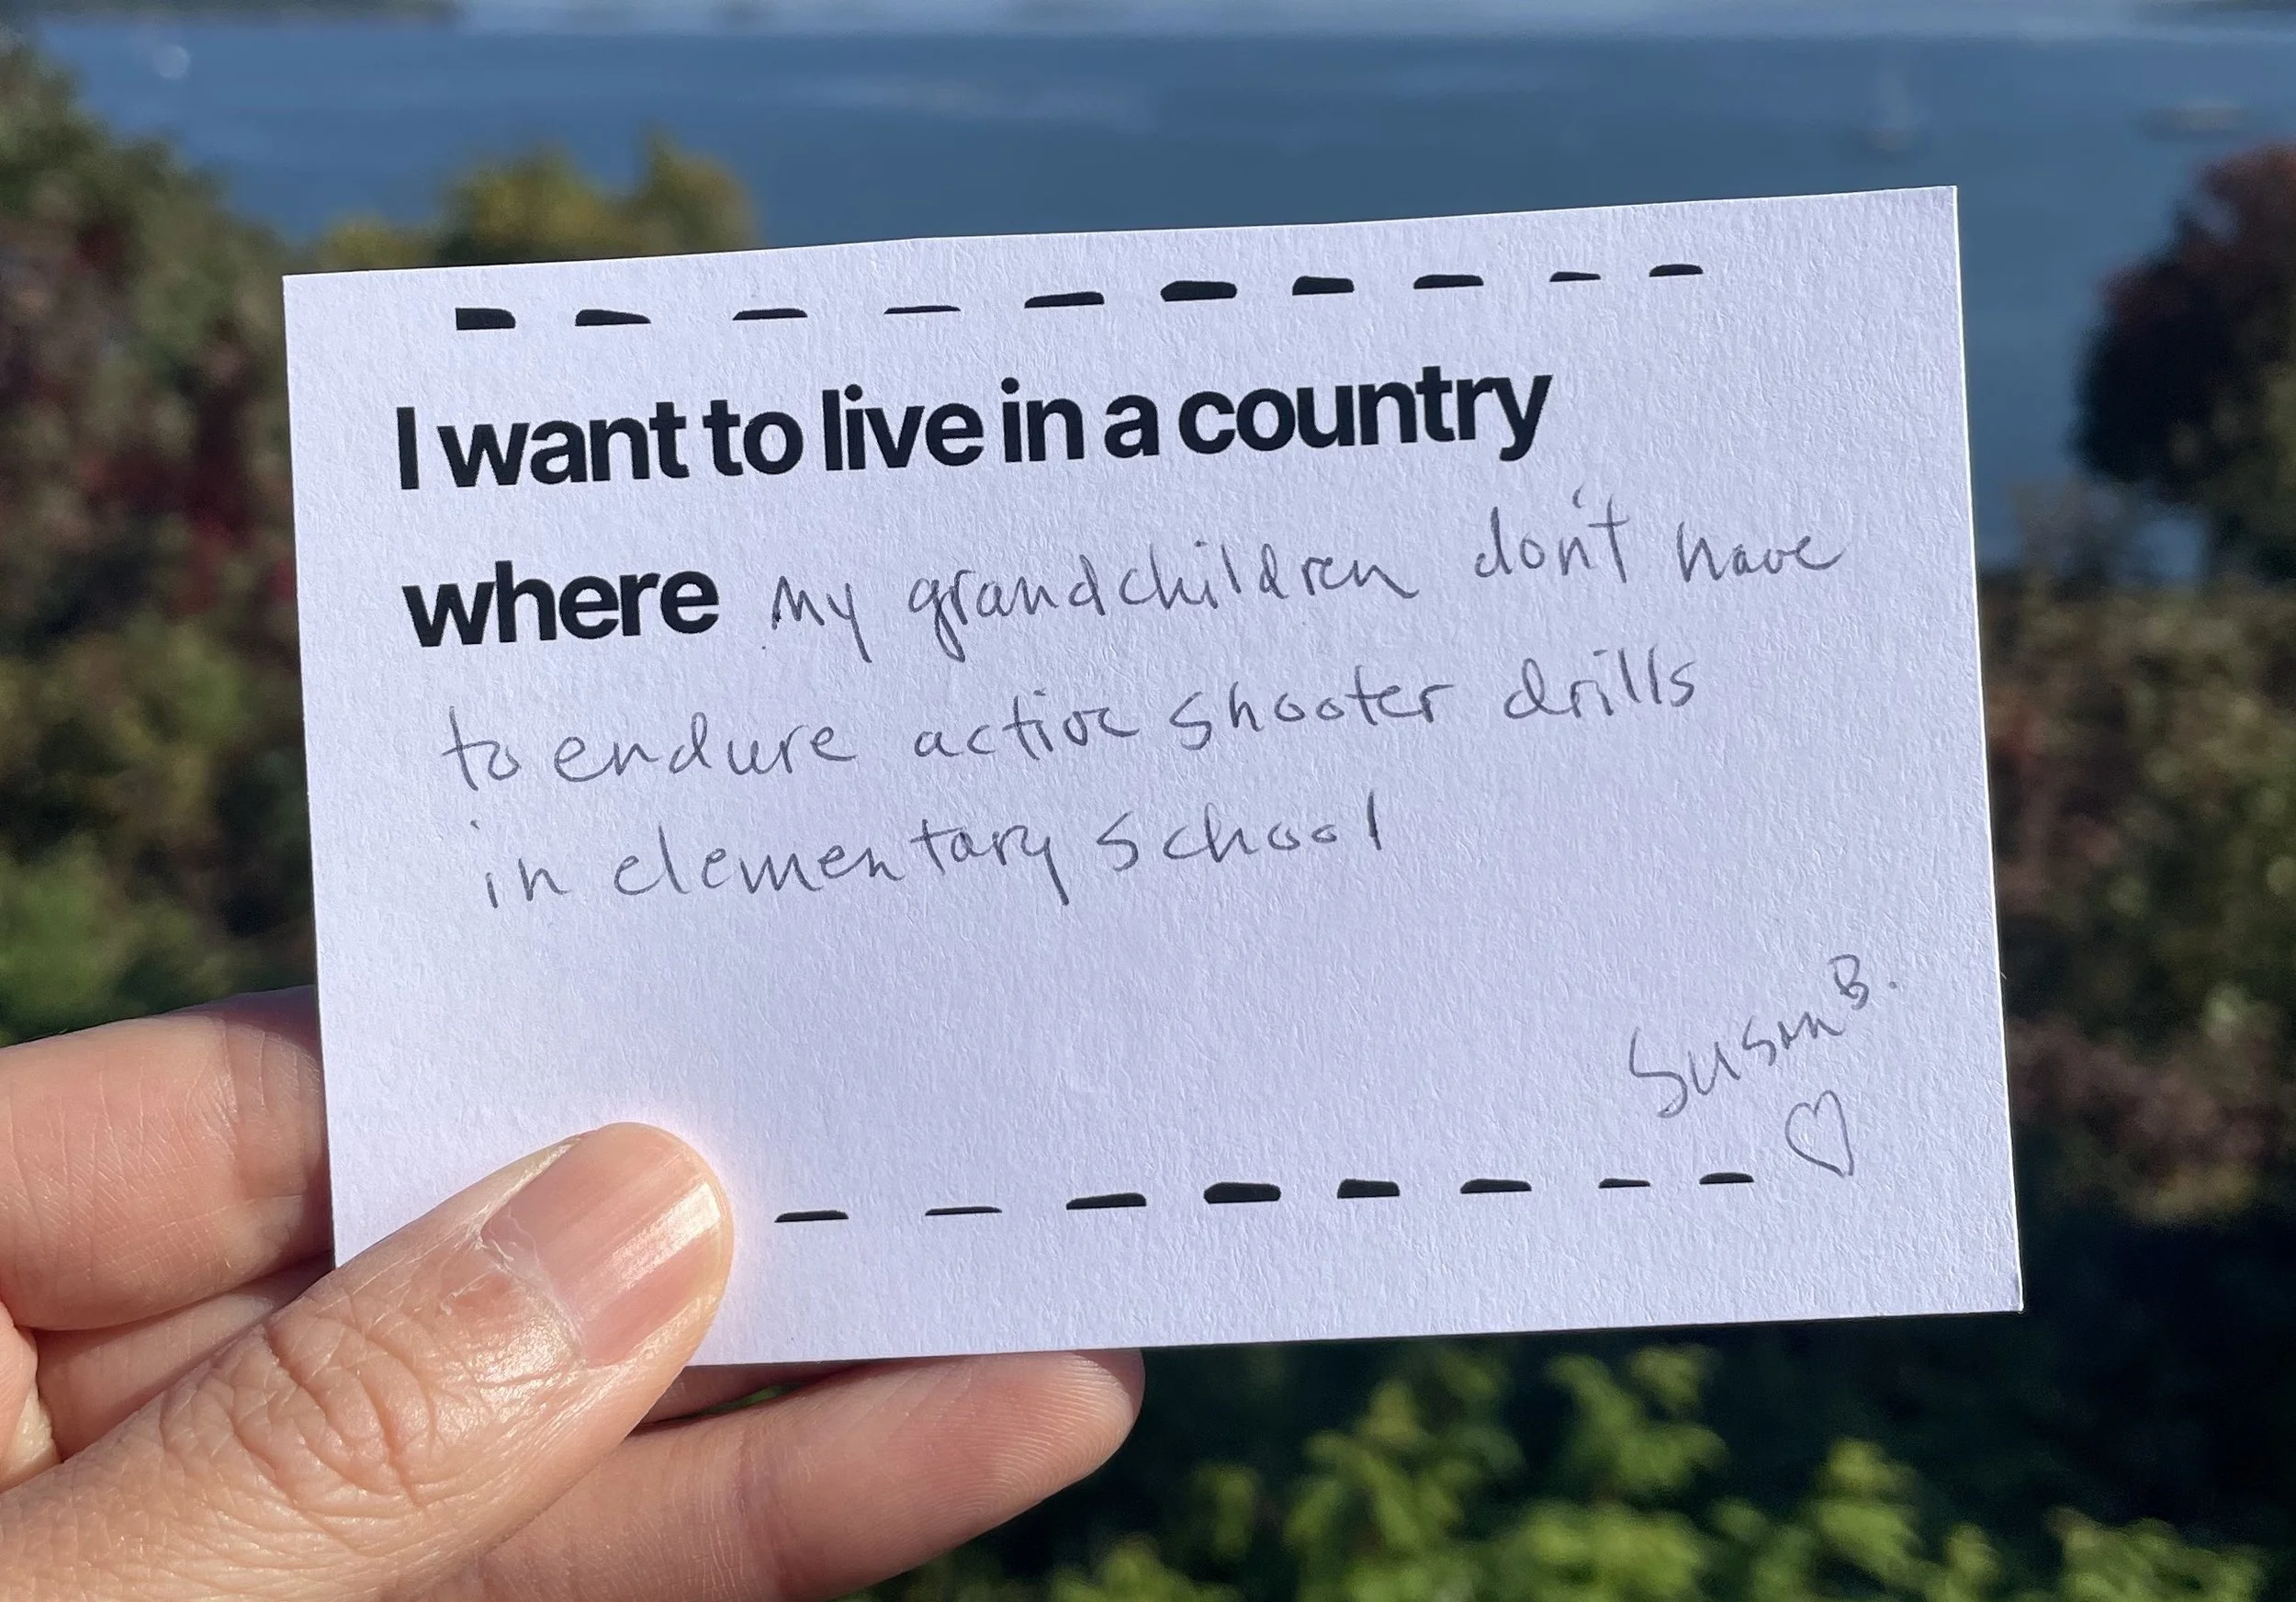 I want to live in a country
where my grandchildren don't have
to endure active shooter drills
in elementary school
Susan B.